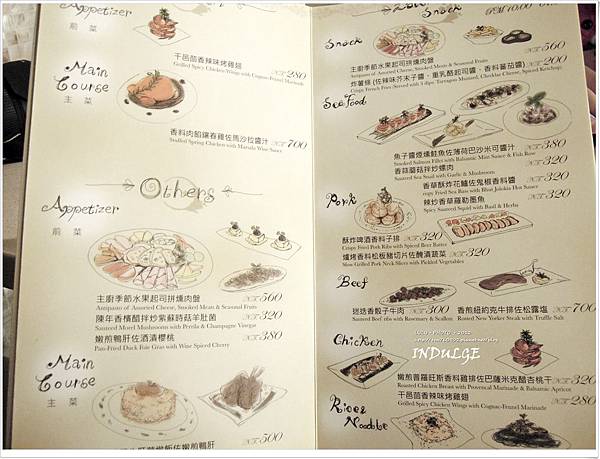 Appetizer
前菜
干邑茴香辣味烤雞翅
Grilled Spicy Chicken Wings with Cognac-Fennel Marinade
NT 280
Main Course
主菜
香料肉餡鑲春雞佐馬沙拉醬汁
Stuffed Spring Chicken with Marsala Wine Sauce
NT 700
Others
Appetizer
前菜
主廚季節水果起司拼燻肉盤
Antipasto of Assorted Cheese, Smoked Meats & Seasonal Fruits
NT 560
陳年香檳醋拌炒紫蘇蒔菇羊肚菌
Sauteed Morel Mushrooms with Perrila & Champagne Vinegar
NT 320
嫩煎鴨肝佐酒漬櫻桃
Pan-Fried Duck Foie Gras with Wine Spiced Cherry
NT 380
Main Course
主菜
NT 500
Snack
Snack
主廚季節水果起司拼燻肉盤
Antipasto of Assorted Cheese, Smoked Meats & Seasonal Fruits
NT 560
炸薯條(佐辣味芥末子醬、重乳酪起司醬、香料蕃茄醬)
NT 200
Crispy French Fries (Served with 3 dips: Tarragon Mustard, Cheddar Cheese, Spiced Ketchup)
Seafood
魚子醬煙燻鮭魚佐薄荷巴沙米可醬汁
NT 380
Smoked Salmon Fillet with Balsamic Mint Sauce & Fish Roe
香蒜蘑菇拌炒螺肉
NT 320
Sauteed Sea Snail with Garlic & Mushroom
香草酥炸花鱸佐鬼椒香料醬
NT 320
Crispy Fried Sea Bass with Bhut Jolokia Hot Sauce
辣炒香草羅勒墨魚
NT 320
Spicy Sauteed Squid with Basil & Herbs
Pork
酥炸啤酒香料子排
NT 320
Crispy Fried Pork Ribs with Spiced Beer Batter
爐烤香料松板豬切片佐醃漬蔬菜
NT 320
Slow Grilled Pork Neck Slices with Pickled Vegetables
Beef
迷迭香骰子牛肉
NT 300
Sauteed Beef ribs with Rosemary & Scallion
香煎紐約克牛排佐松露鹽
NT 700
Roasted New Yorker Steak with Truffle Salt
INDULGE
Chicken
嫩煎普羅旺斯香料雞排佐巴薩米克醋杏桃干
NT 320
Roasted Chicken Breast with Provencal Marinade & Balsamic Apricot
干邑茴香辣味烤雞翅
NT 280
Grilled Spicy Chicken Wings with Cognac-Fennel Marinade
Rice & Noodle